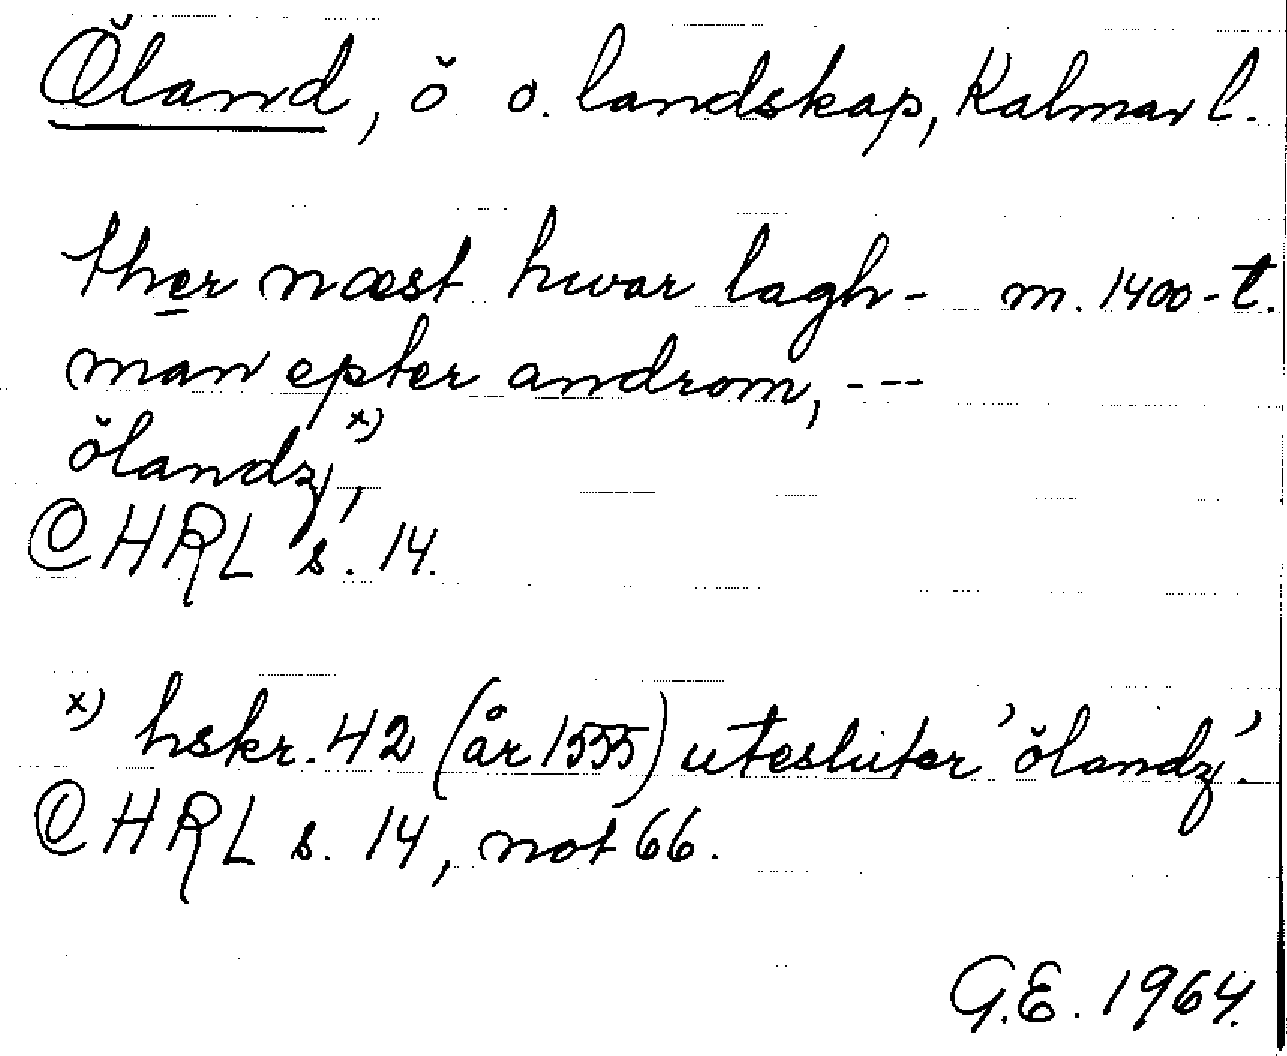 Öland, ö o. landskap, Kalmar l.
ther næst hwar lagh- m. 1400-t.
man epter androm, ---
ölandz, x)
CHRL s. 14.
x) hskr. 42 (år 1555) utesluter 'ölandz'.
CHRL s. 14, not 66.
G.E. 1964.